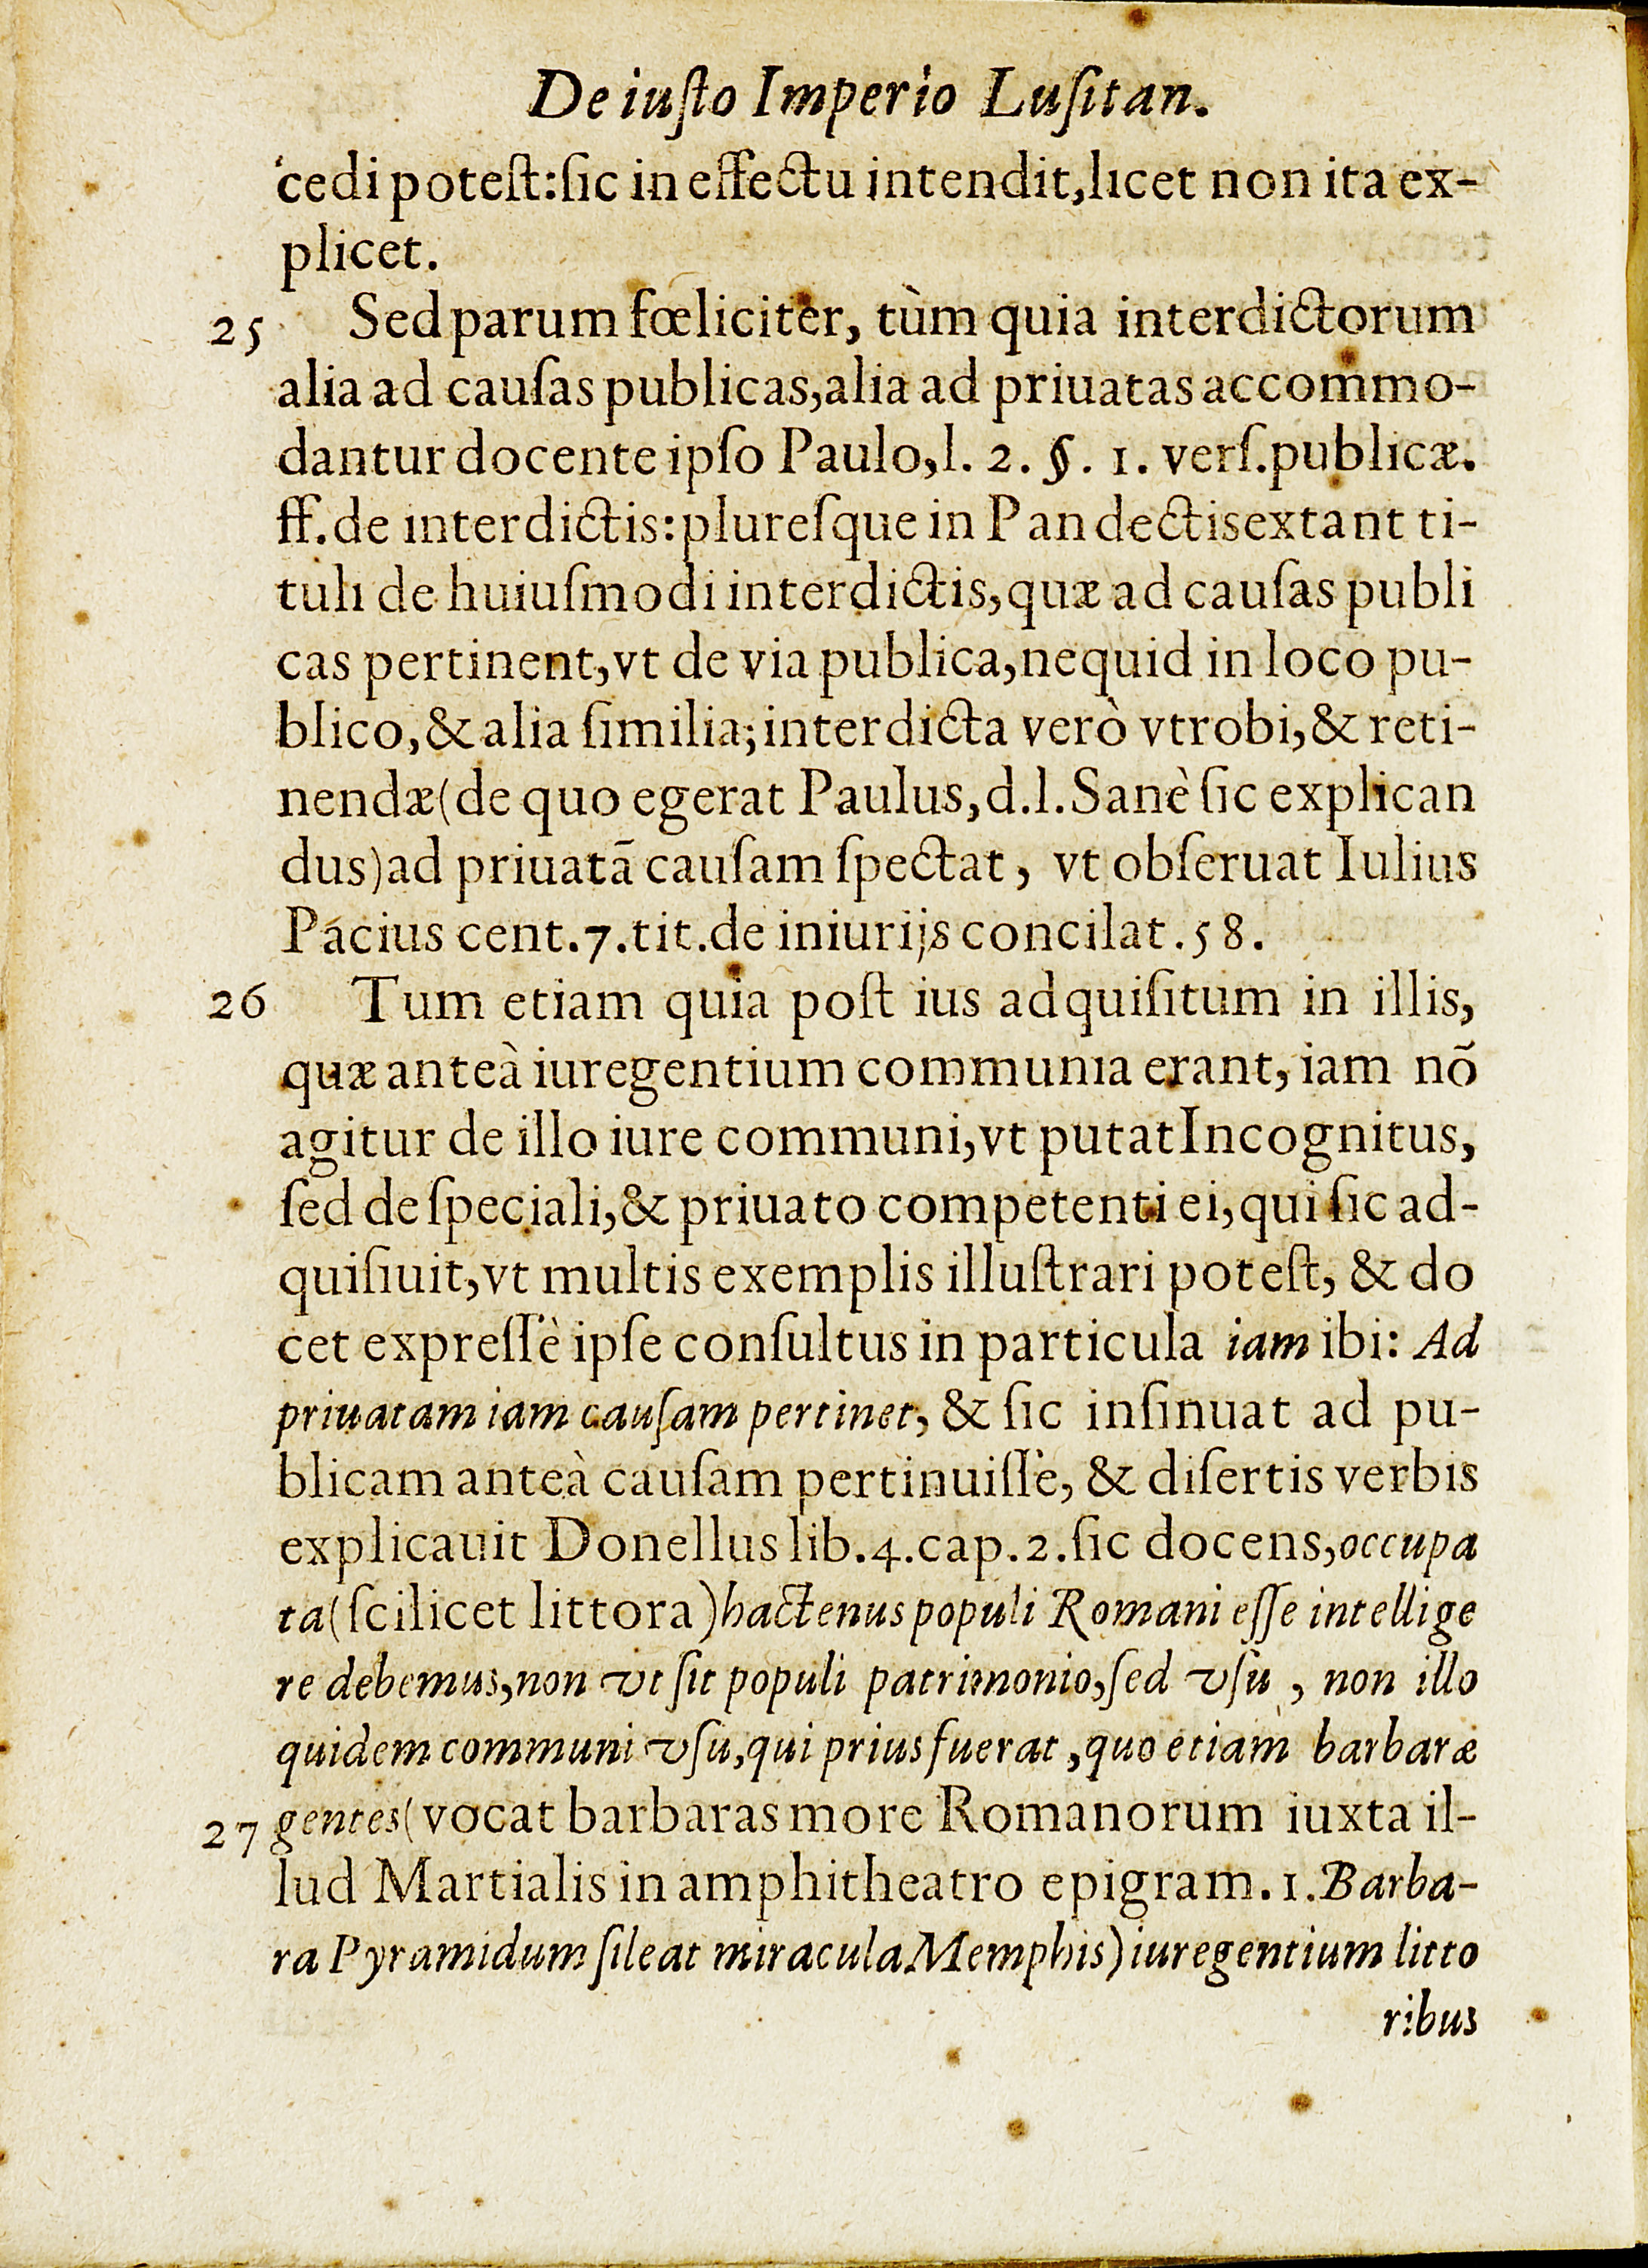 De iuſto Imperio Luſitan.
cedi poteſt:ſic in effectu intendit,licet non ita ex-
plicet.
25 Sed parum fœliciter, tùm quia interdictorum
alia ad cauſas publicas,alia ad priuatas accommo-
dantur docente ipſo Paulo,l. 2. §. 1. verſ.publicæ.
ff.de interdictis:plureſque in Pandectis extant ti-
tuli de huiuſmodi interdictis,quæ ad cauſas publi
cas pertinent,vt de via publica,nequid in loco pu-
blico,& alia ſimilia;interdicta verò vtrobi,& reti-
nendæ(de quo egerat Paulus,d.l.Sanè ſic explican
dus)ad priuatã cauſam ſpectat, vt obſeruat Iulius
Pacius cent.7.tit.de iniurijs concilat.58.
26 Tum etiam quia poſt ius adquiſitum in illis,
quæ anteà iure gentium communia erant, iam nõ
agitur de illo iure communi,vt putat Incognitus,
ſed de ſpeciali,& priuato competenti ei,qui ſic ad-
quiſiuit,vt multis exemplis illuſtrari poteſt, & do
cet expreſſè ipſe conſultus in particula iam ibi: Ad
priuatam iam cauſam pertinet, & ſic inſinuat ad pu-
blicam anteà cauſam pertinuiſſe, & diſertis verbis
explicauit Donellus lib.4.cap.2.ſic docens,occupa
ta(ſcilicet littora)hactenus populi Romani eſſe intellige
re debemus,non vt ſit populi patrimonio,ſed vſu , non illo
quidem communi vſu,qui prius fuerat ,quo etiam barbaræ
27 gentes(vocat barbaras more Romanorum iuxta il-
lud Martialis in amphitheatro epigram.1.Barba-
ra Pyramidum ſileat miracula Memphis)iure gentium litto
ribus